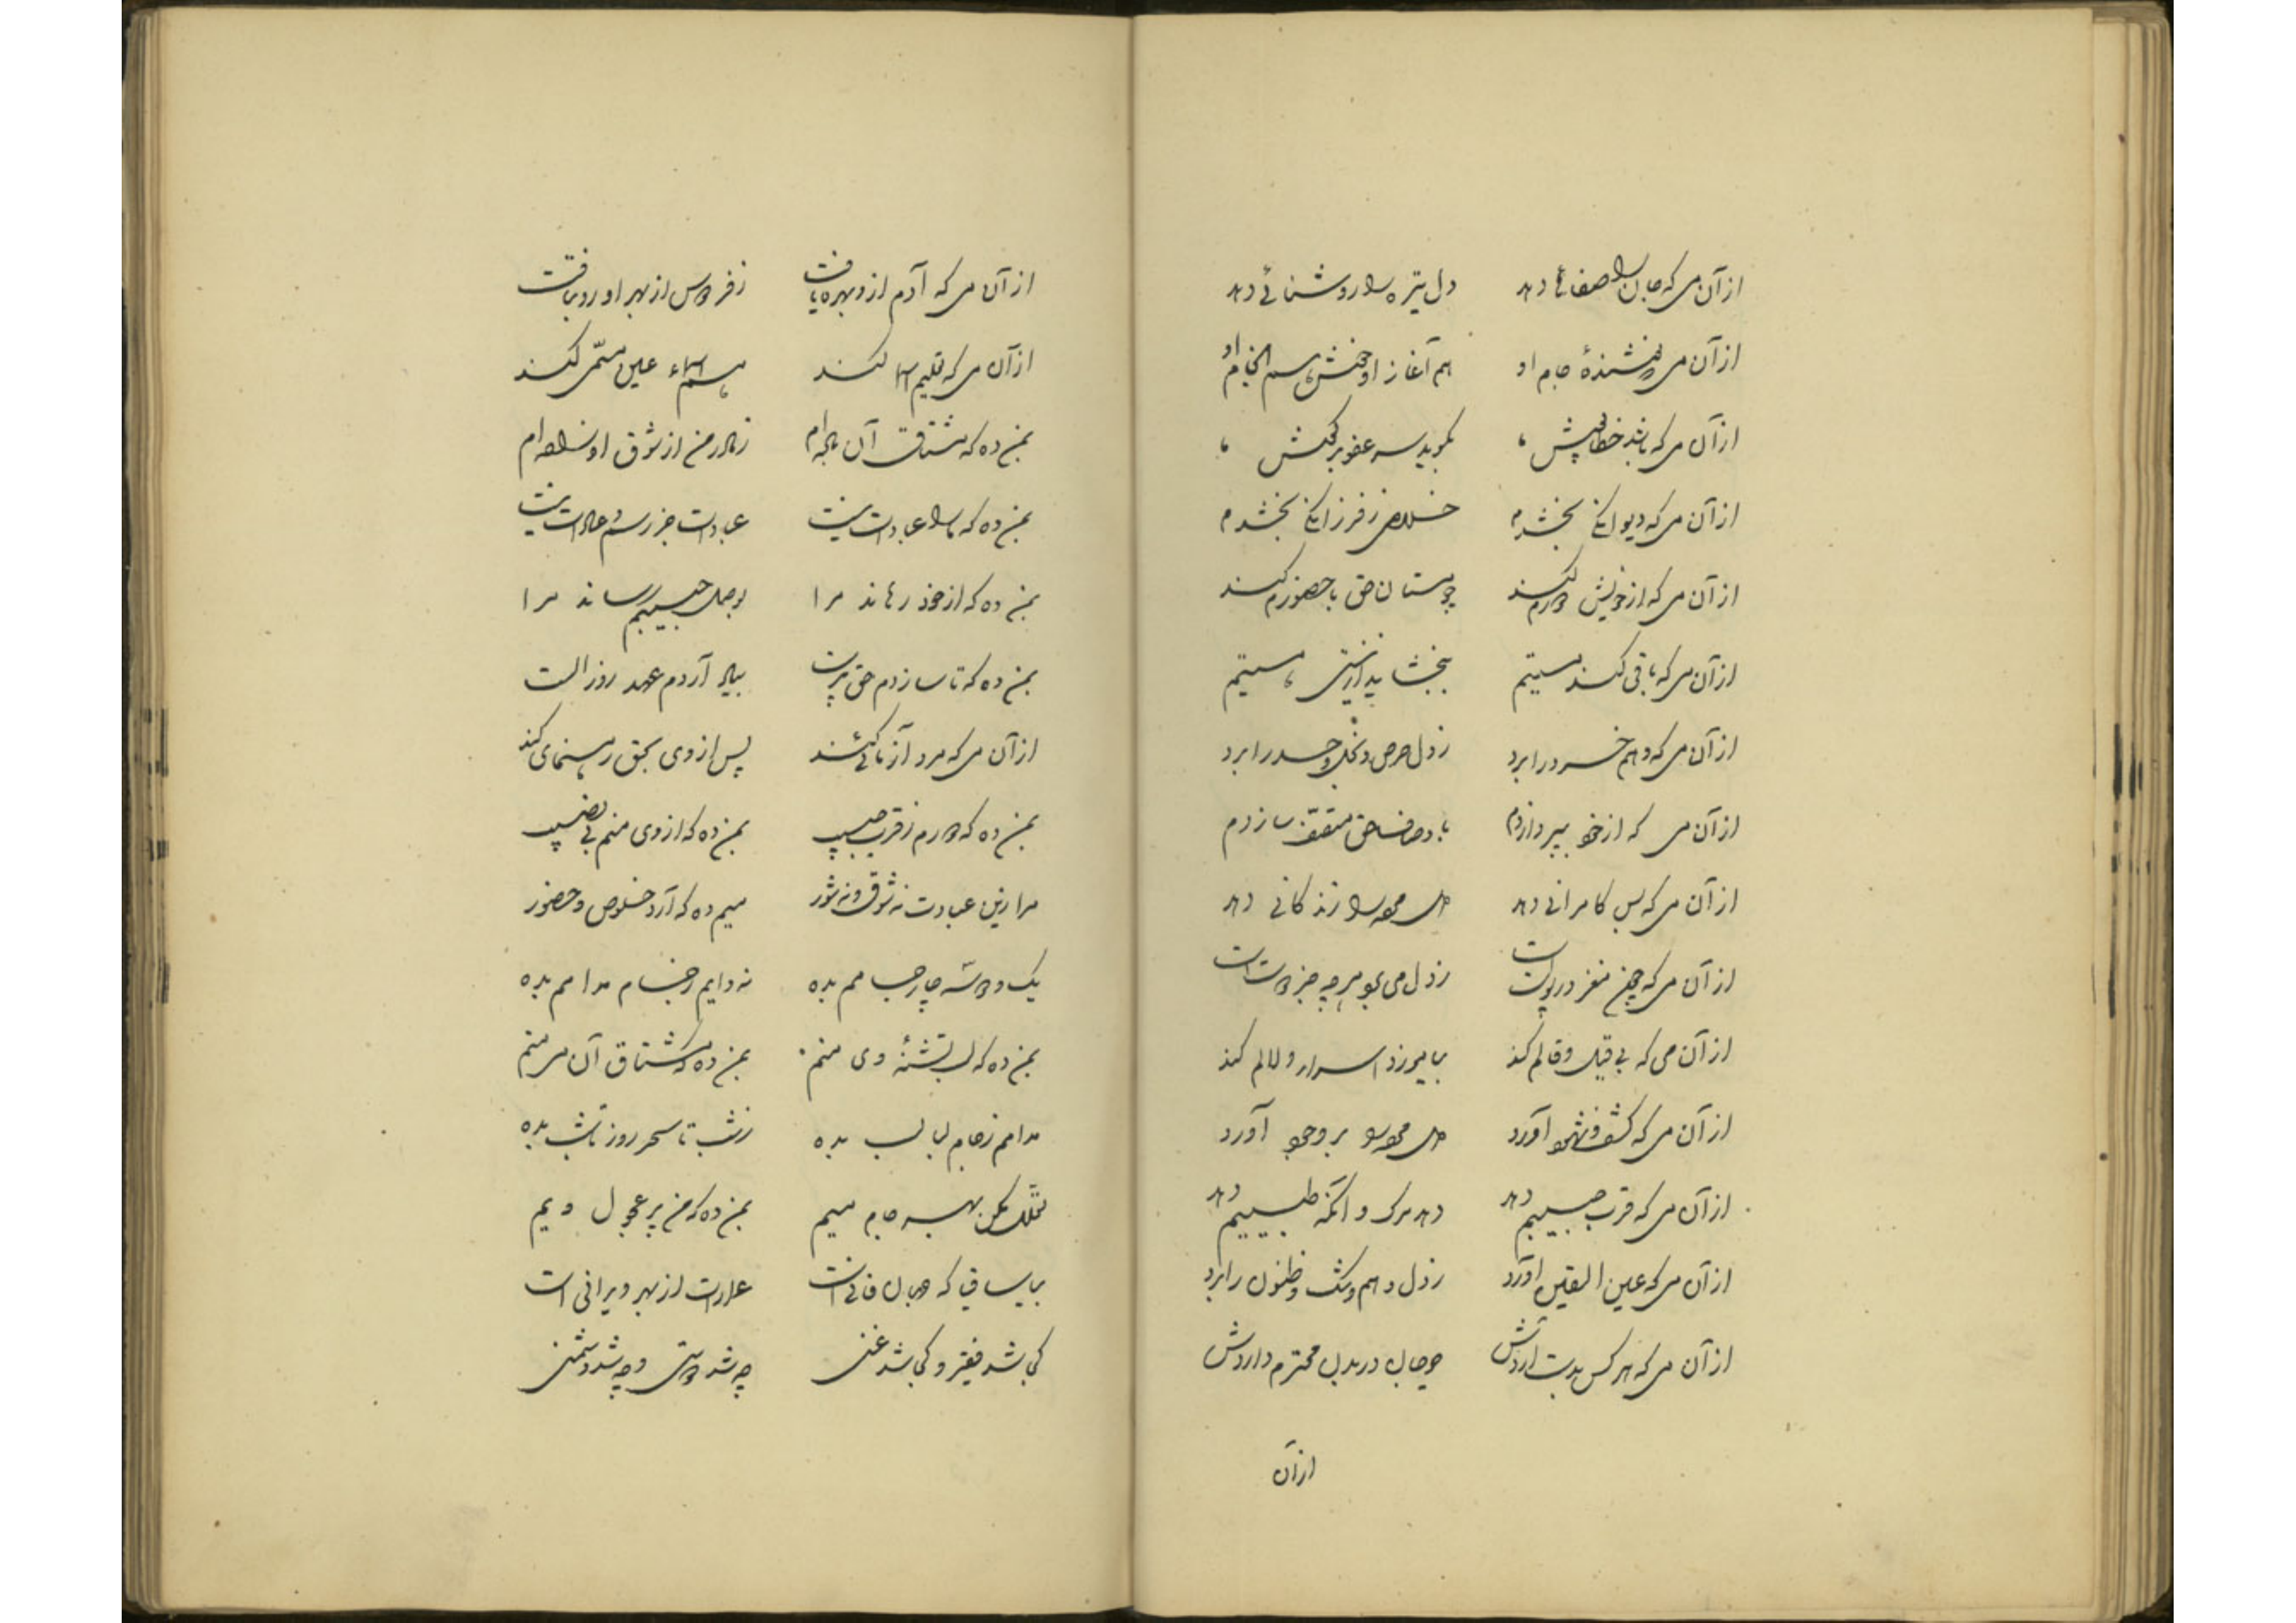 از آن می که جان را صفائی دهد دل تیره را روشنائی دهد
از آن می نوشندهٔ جام او هم آغاز او خوش هم انجام او
از آن می که باشد خطا پوشش بگوید سر عفو بر گوش
از آن می که دیوانگی بخشدم خلاصی ز فرزانگی بخشدم
از آن می که از خویش دورم کند چو مستان حق با حضورم کند
از آن می که باقی کند هستیم ببخشاید از نیستی هستیم
از آن می که وهم خرد را برد ز دل حرص و بخل و حسد را برد
از آن می که از خود بپردازدم باوصاف حق متصف سازدم
از آن می که بس کامرانی دهد دل مرده را زندگانی دهد
از آن می که چون مغز در پوست است ز دل می برد هر چه جز دوست است
از آن می که بی قیل و قالم کند بیامرزد اسرار و لالم کند
از آن می که کشف و شهود آورد دل مرده را بر وجود آورد
از آن می که قرب حبیبم دهد دهد مرگ و آنگه طبیبم دهد
از آن می که عین الیقین آورد ز دل وهم و شک و ظنون را برد
از آن می که هر کس بدست آردش چو جان در بدن محترم داردش
از آن
از آن می که آدم ازو بهره یافت ز فردوس از بهر او رو بتافت
از آن می که تعلیم اسما کند هم اسماء عین مسمّی کند
بمن ده که مشتاق آن باده‌ام ز مادر من از شوق او زاده‌ام
بمن ده که ما را عبادت نیست عبادت جز رسم و عادات نیست
بمن ده که از خود رهاند مرا بوصل حبیبم رساند مرا
بمن ده که تا سازدم حق پرست بیاد آردم عهد روز الست
از آن می که مرد آزمائی کند پس از وی بحق رهنمائی کند
بمن ده که دورم ز قرب حبیب بمن ده که از وی منم بی نصیب
مرا زین عبادت نه شوق و نه شور میم ده که آرد خلوص و حضور
یک و دو سه چار جامم بده نه دایم ز جام مدامم بده
بمن ده که لب تشنهٔ وی منم بمن ده که مشتاق آن می منم
مدامم ز جام لبالب بده ز شب تا سحر روز تا شب بده
تعلل مکن بهر جام میم بمن ده که من پر عجول ویم
بیا ساقی که جهان فانی است عمارت از بهر ویرانی است
کی باشد فقیر و کی باشد غنی چه شد دوستی و چه شد دشمنی